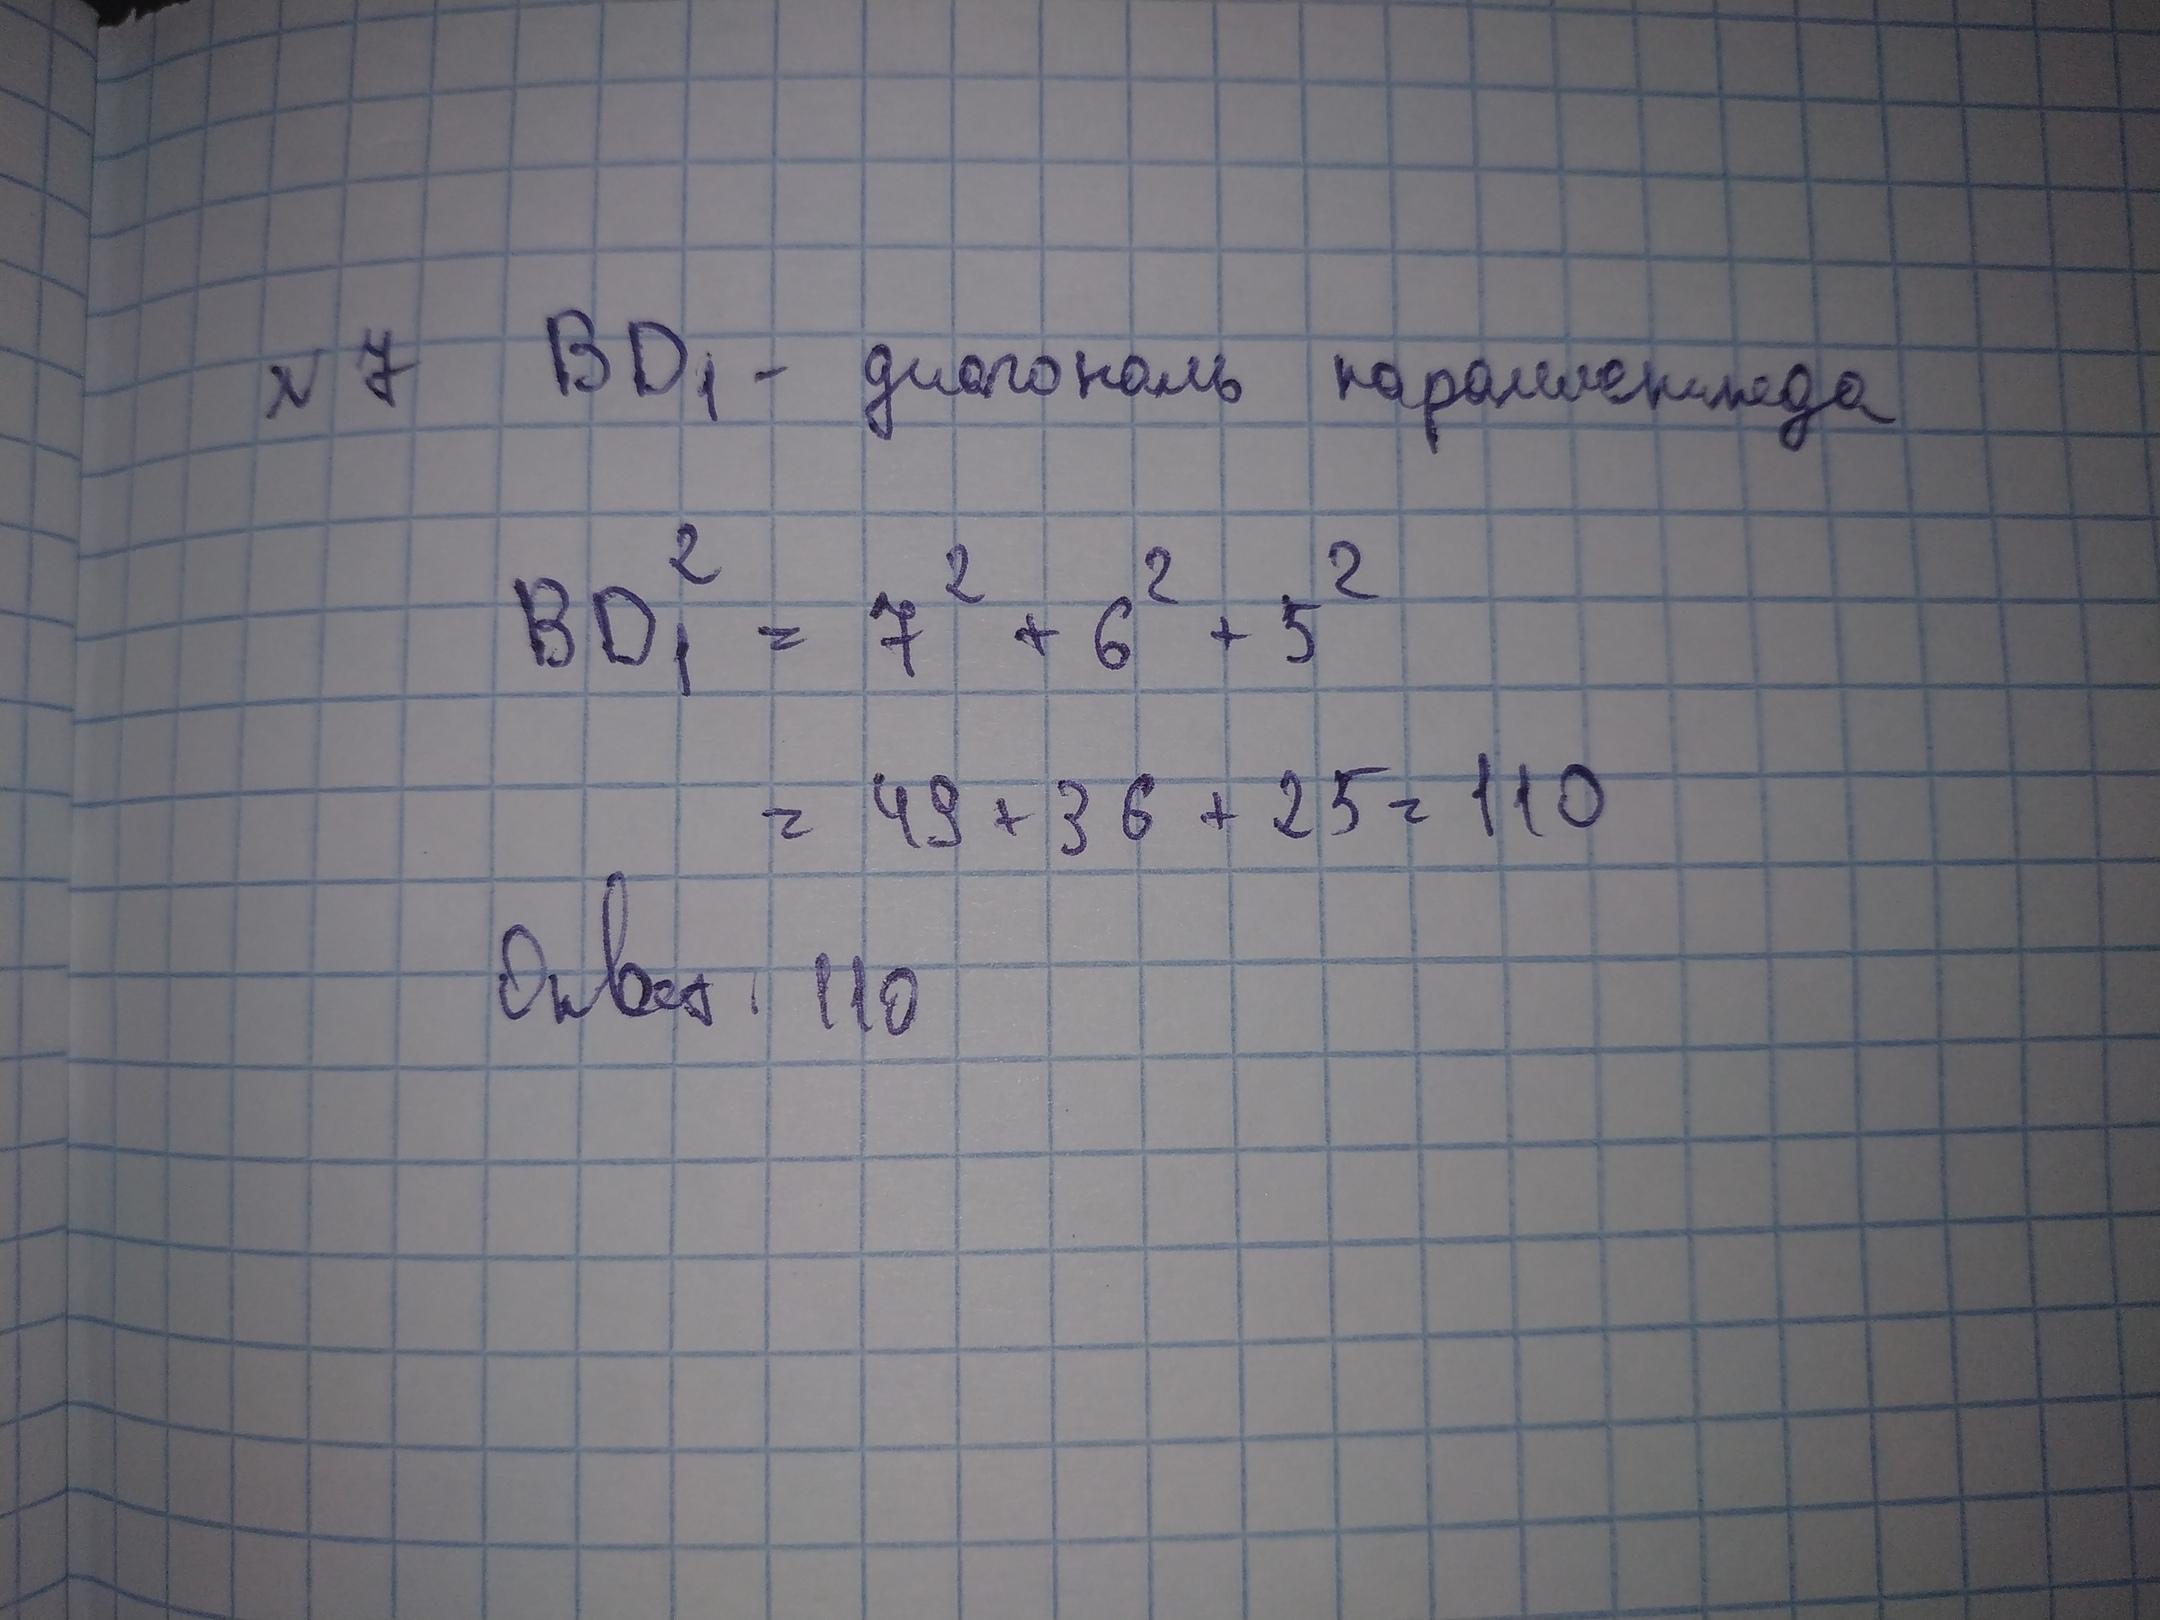 № 7 BD₁ - диагональ параллепипеда
BD₁² = 7² + 6² + 5²
= 49 + 36 + 25 = 110
Ответ: 110